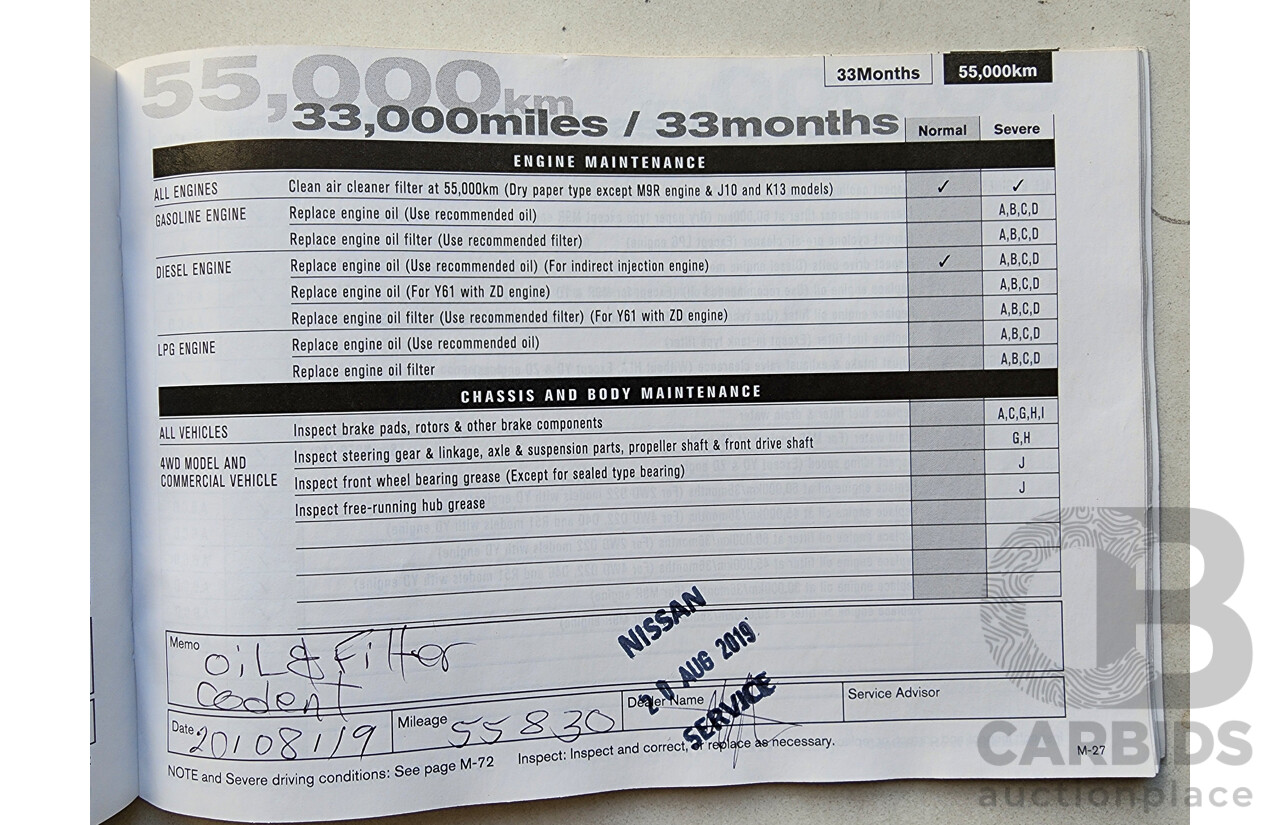 33Months 55,000km
55,000km
33,000miles / 33months Normal Severe
ENGINE MAINTENANCE
ALL ENGINES Clean air cleaner filter at 55,000km (Dry paper type except M9R engine & J10 and K13 models) ✓ ✓
GASOLINE ENGINE Replace engine oil (Use recommended oil) A,B,C,D
Replace engine oil filter (Use recommended filter) A,B,C,D
DIESEL ENGINE Replace engine oil (Use recommended oil) (For indirect injection engine) ✓ A,B,C,D
Replace engine oil (For Y61 with ZD engine) A,B,C,D
Replace engine oil filter (Use recommended filter) (For Y61 with ZD engine) A,B,C,D
LPG ENGINE Replace engine oil (Use recommended oil) A,B,C,D
Replace engine oil filter A,B,C,D
CHASSIS AND BODY MAINTENANCE
ALL VEHICLES Inspect brake pads, rotors & other brake components A,C,G,H,I
4WD MODEL AND COMMERCIAL VEHICLE Inspect steering gear & linkage, axle & suspension parts, propeller shaft & front drive shaft G,H
Inspect front wheel bearing grease (Except for sealed type bearing) J
Inspect free-running hub grease J
Memo oil & Filter
NISSAN
20 AUG 2019
SERVICE
Date 20/08/19 Mileage 55830 Dealer Name Service Advisor
NOTE and Severe driving conditions: See page M-72 Inspect: Inspect and correct, or replace as necessary.
M-27
CARBIDS
auctionplace